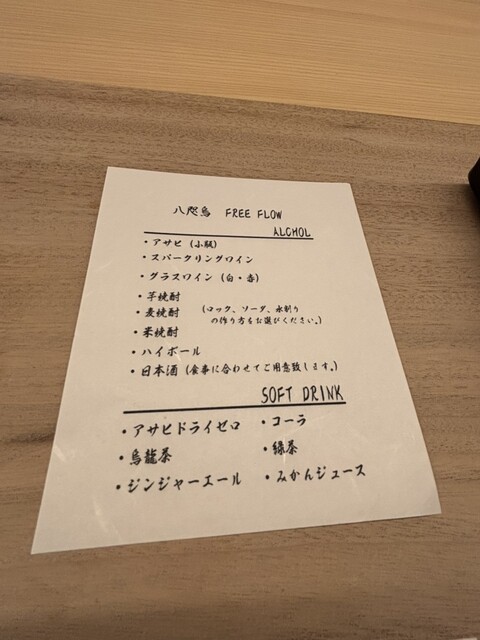 八咫烏 FREE FLOW
ALCHOL
・アサヒ (小瓶)
・スパークリングワイン
・グラスワイン (白・赤)
・芋焼酎
・麦焼酎 (ロック、ソーダ、水割り
・米焼酎 の作り方もお選びください。)
・ハイボール
・日本酒 (食事に合わせてご用意致します。)
SOFT DRINK
・アサヒドライゼロ ・コーラ
・烏龍茶 ・緑茶
・ジンジャーエール ・みかんジュース